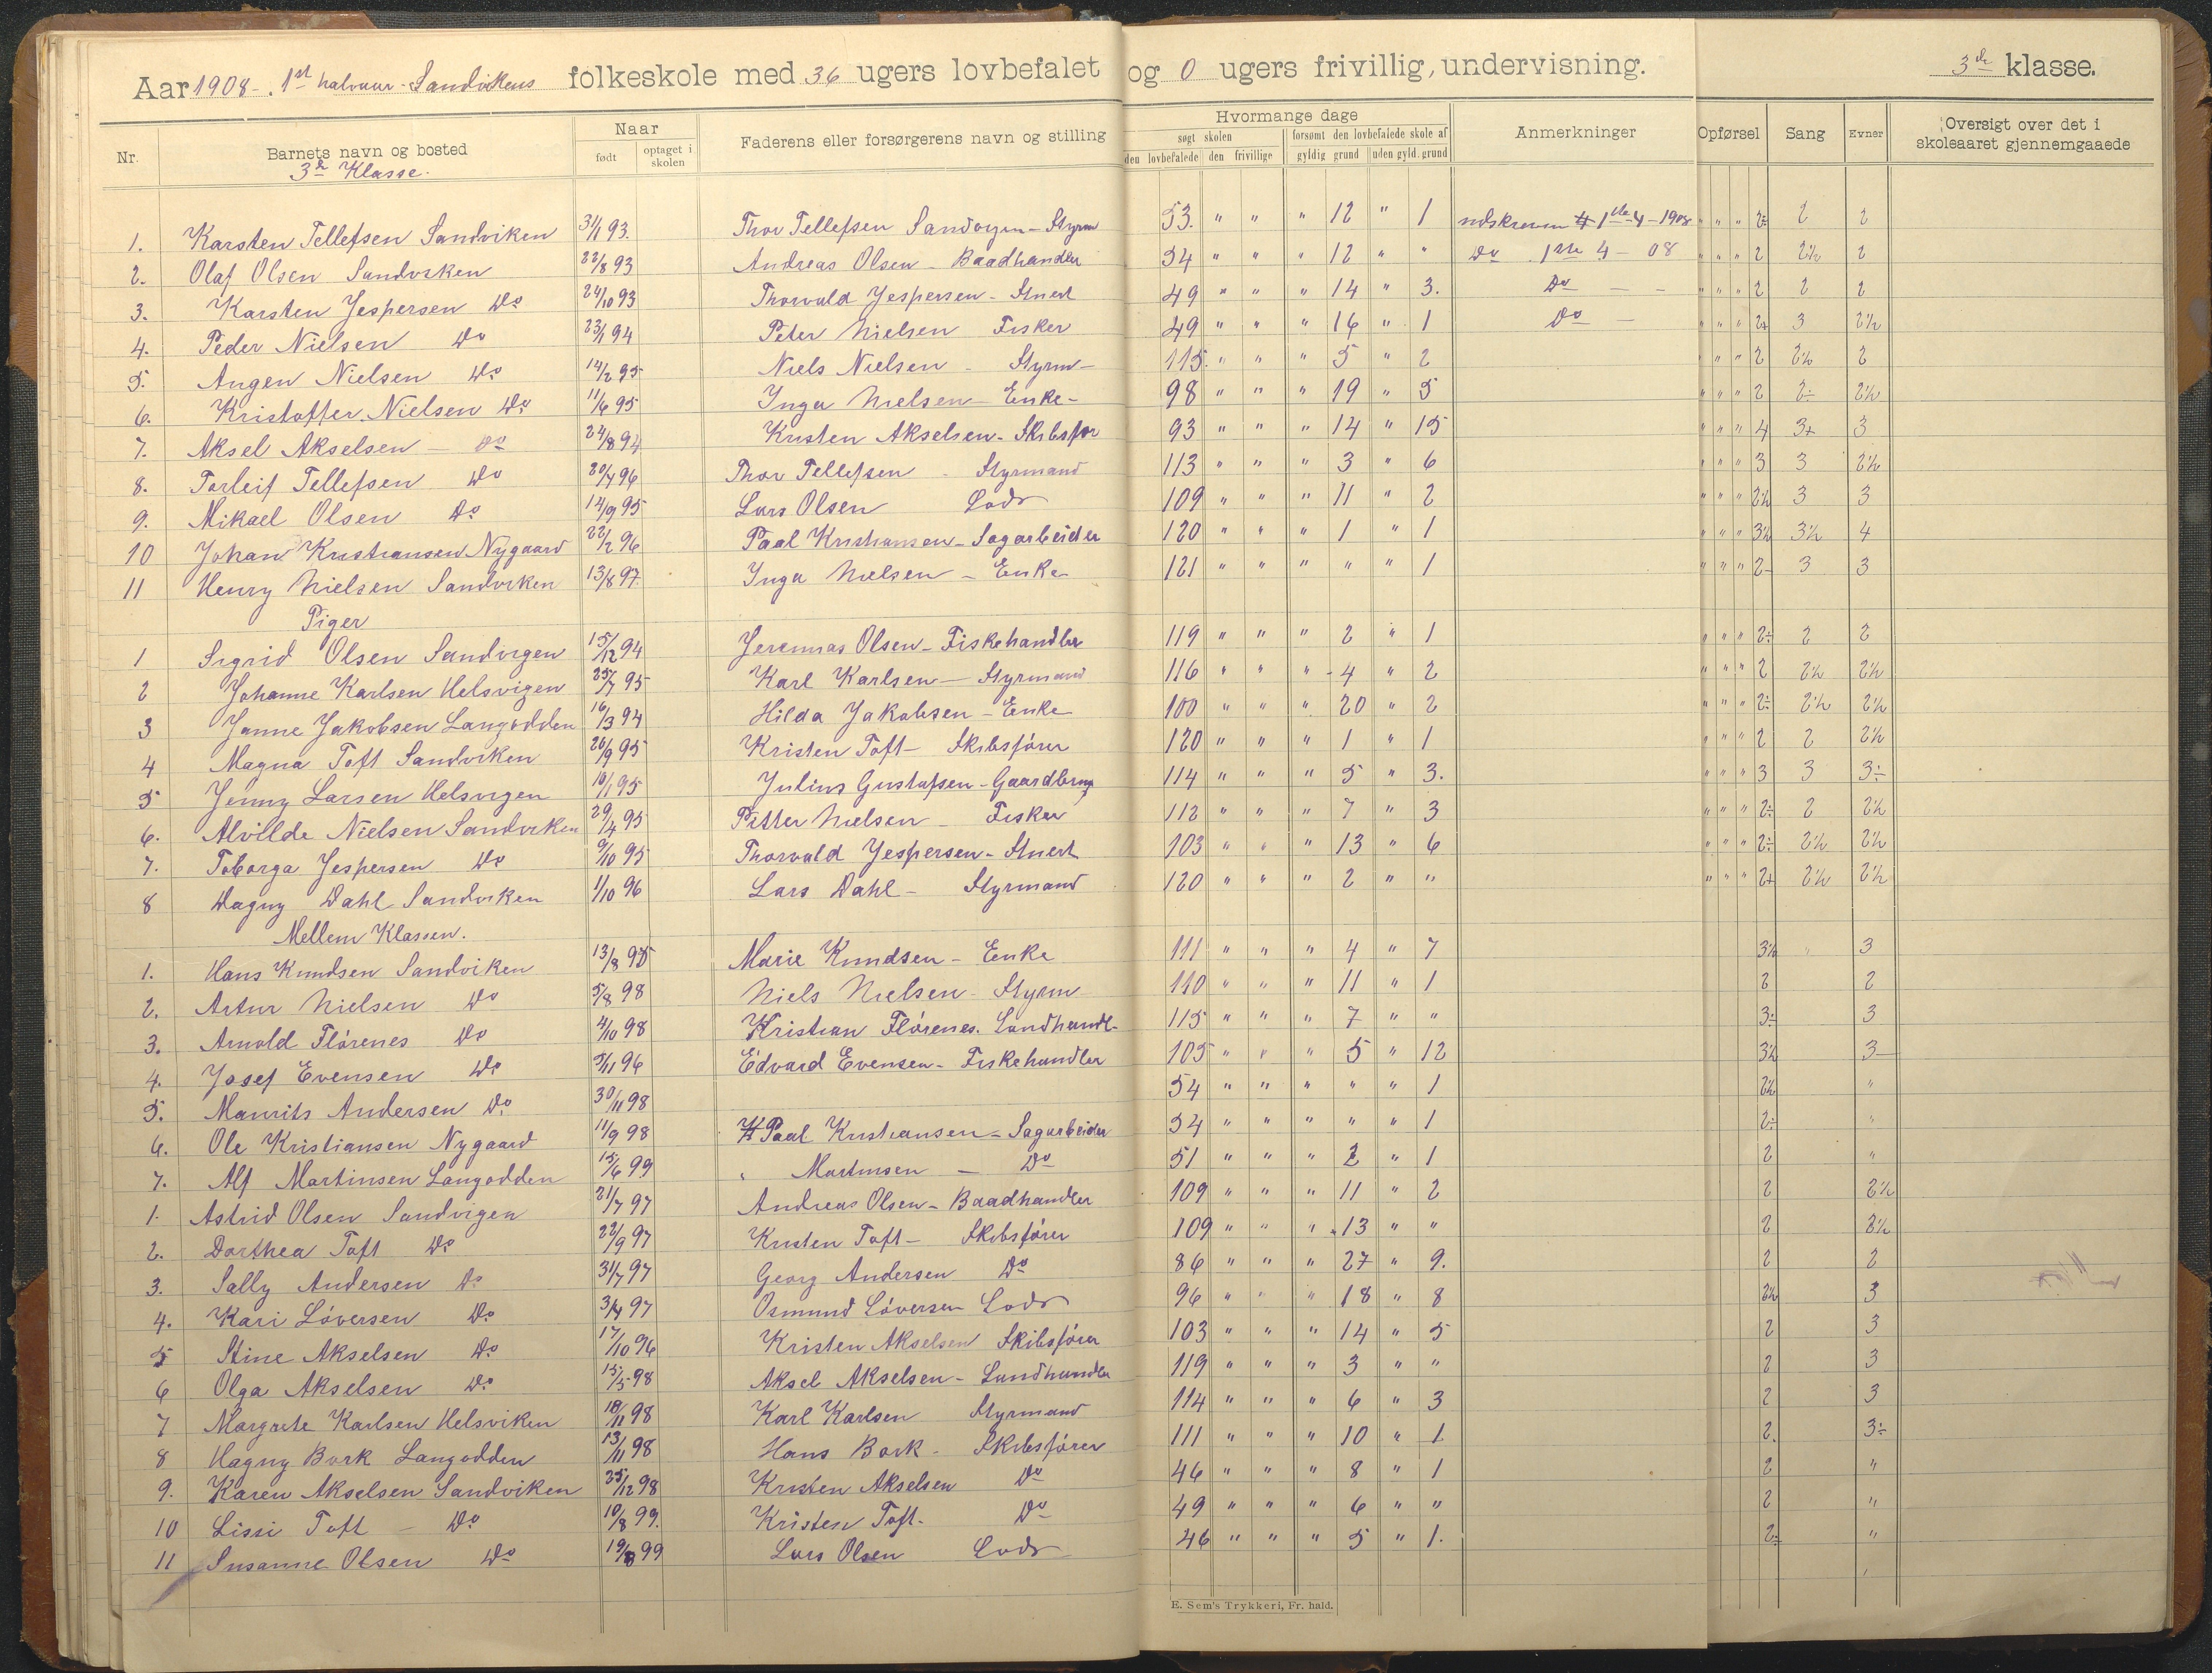 Aar 1908 - 1st halvaar - Sandvikens folkeskole med 36 ugers lovbefalet og 0 ugers frivillig, undervisning. 3de klasse.
Nr. Barnets navn og bosted Naar født optaget i skolen Faderens eller forsørgerens navn og stilling Hvormange dage søgt skolen den lovbefalede den frivillige forsømt den lovbefalede skole af gyldig grund uden gyld. grund Anmerkninger Opførsel Sang Evner Oversigt over det i skoleaaret gjennemgaaede
3de Klasse.
1. Karsten Tellefsen Sandviken 31/1 93. Thor Tellefsen Sandvigen - Styrm 53. " " " 12 " 1 udskreven 1ste 4-1908 " " " 2÷ 2 2
2. Olaf Olsen Sandviken 22/8 93 Andreas Olsen - Baadhandler 54 " " " 12 " " Do 1ste 4 - 08 " " " 2 2½ 2
3. Karsten Jespersen Do 24/10 93 Thorvald Jespersen - Stuert 49 " " " 14 " 3. Do - - " " " 2 2 2
4. Peder Nielsen Do 23/1 94 Peter Nielsen Fisker 49 " " " 16 " 1 Do - " " " 2+ 3 2½
5. Angen Nielsen Do 14/2 95 Niels Nielsen - Styrm - 115. " " " 5 " 2 " " " 2 2½ 2
6. Kristoffer Nielsen Do 11/6 95 Inga Nielsen - Enke - 98 " " " 19 " 5 " " " 2 2÷ 2½
7. Aksel Akselsen - Do 24/8 94 Kristen Akselsen - Skibsfør 93 " " " 14 " 15 " " " 4 3+ 3
8. Torleif Tellefsen Do 20/4 96 Thor Tellefsen - Styrmand 113 " " " 3 " 6 " " " 3 3 2½
9. Mikael Olsen Do 14/9 95 Lars Olsen Lods 109 " " " 11 " 2 " " " 2½ 3 3
10 Johan Kristiansen Nygaard 22/2 96 Paal Kristiansen - Sagarbeider 120 " " " 1 " 1 " " " 3½ 3½ 4
11 Henry Nielsen Sandviken 13/8 97. Inga Nielsen - Enke 121 " " " " " 1 " " " 2- 3 3
Piger
1 Sigrid Olsen Sandvigen 15/12 94 Jeremias Olsen - Fiskehandler 119 " " " 2 " 1 " " " 2÷ 2 2
2 Johanne Karlsen Helsvigen 25/7 95 Karl Karlsen - Styrmand 116 " " " 4 " 2 " " " 2 2½ 2½
3 Janne Jakobsen Langodden 16/3 94 Hilda Jakobsen - Enke 100 " " " 20 " 2 " " " 2÷ 2½ 2½
4 Magna Toft Sandviken 26/9 95 Kristen Toft - Skibsfører 120 " " " 1 " 1 " " " 2 2 2½
5 Jenny Larsen Helsvigen 10/1 95 Julius Gustafsen - Gaardbrug 114 " " " 5 " 3. " " " 3 3 3÷
6. Alvilde Nielsen Sandviken 29/4 95 Petter Nielsen - Fisker 112 " " " 7 " 3 " " " 2÷ 2 2½
7. Toborga Jespersen Do 9/10 95 Thorvald Jespersen - Stuert 103 " " " 13 " 6 " " " 2÷ 2½ 2½
8 Dagny Dahl Sandviken 1/10 96 Lars Dahl - Styrmand 120 " " " 2 " " " " " 2+ 2½ 2½
Mellem Klassen.
1. Hans Knudsen Sandviken 13/8 95 Marie Knudsen - Enke 111 " " " 4 " 7 3½ " 3
2. Artur Nielsen Do 5/8 98 Niels Nielsen - Styrm 110 " " " 11 " 1 2 2
3. Arnold Flørenes Do 4/10 98 Kristian Flørenes. Landhandl- 115 " " " 7 " " 3÷ 3
4. Josef Evensen Do 5/11 96 Edvard Evensen - Fiskehandler 105 " " " 5 " 12 3½ 3-
5. Maurits Andersen Do 30/11 98 54 " " " " " 1 2½ "
6. Ole Kristiansen Nygaard 11/9 98 Paal Kristiansen - Sagarbeider 54 " " " " " 1 2÷ "
7. Alf Martinsen Langodden 15/6 99 " Martinsen - Do 51 " " " 2 " 1 2 "
1. Astrid Olsen Sandvigen 21/7 97 Andreas Olsen - Baadhandler 109 " " " 11 " 2 2 2½
2. Dorthea Toft Do 22/9 97 Kristen Toft - Skibsfører 109 " " " 13 " " 2 2½
3. Sally Andersen Do 31/7 97 Georg Andersen Do 86 " " " 27 " 9. 2 2
4. Kari Løversen Do 3/4 97 Osmund Løversen Lods 96 " " " 18 " 8 2½ 3
5 Stine Akselsen Do 17/10 96 Kristen Akselsen Skibsfører 103 " " " 14 " 5 2 3
6 Olga Akselsen Do 15/5 98 Aksel Akselsen - Landhandler 119 " " " 3 " " 2 3
7 Margrete Karlsen Helsviken 18/11 98 Karl Karlsen Styrmand 114 " " " 6 " 3 2 3
8 Hagny Bork Langodden 13/11 98 Hans Bork - Skibsfører 111 " " " 10 " 1 2. 3÷
9. Karen Akselsen Sandviken 25/12 98 Kristen Akselsen Do 46 " " " 8 " 1 2 "
10 Lissi Toft - Do 10/8 99. Kristen Toft. Do 49 " " " 6 " " 2 "
11 Susanne Olsen Do 19/8 99 Lars Olsen Lods 46 " " " 5 " 1. 2÷ "
E. Sem's Trykkeri, Fr. hald.